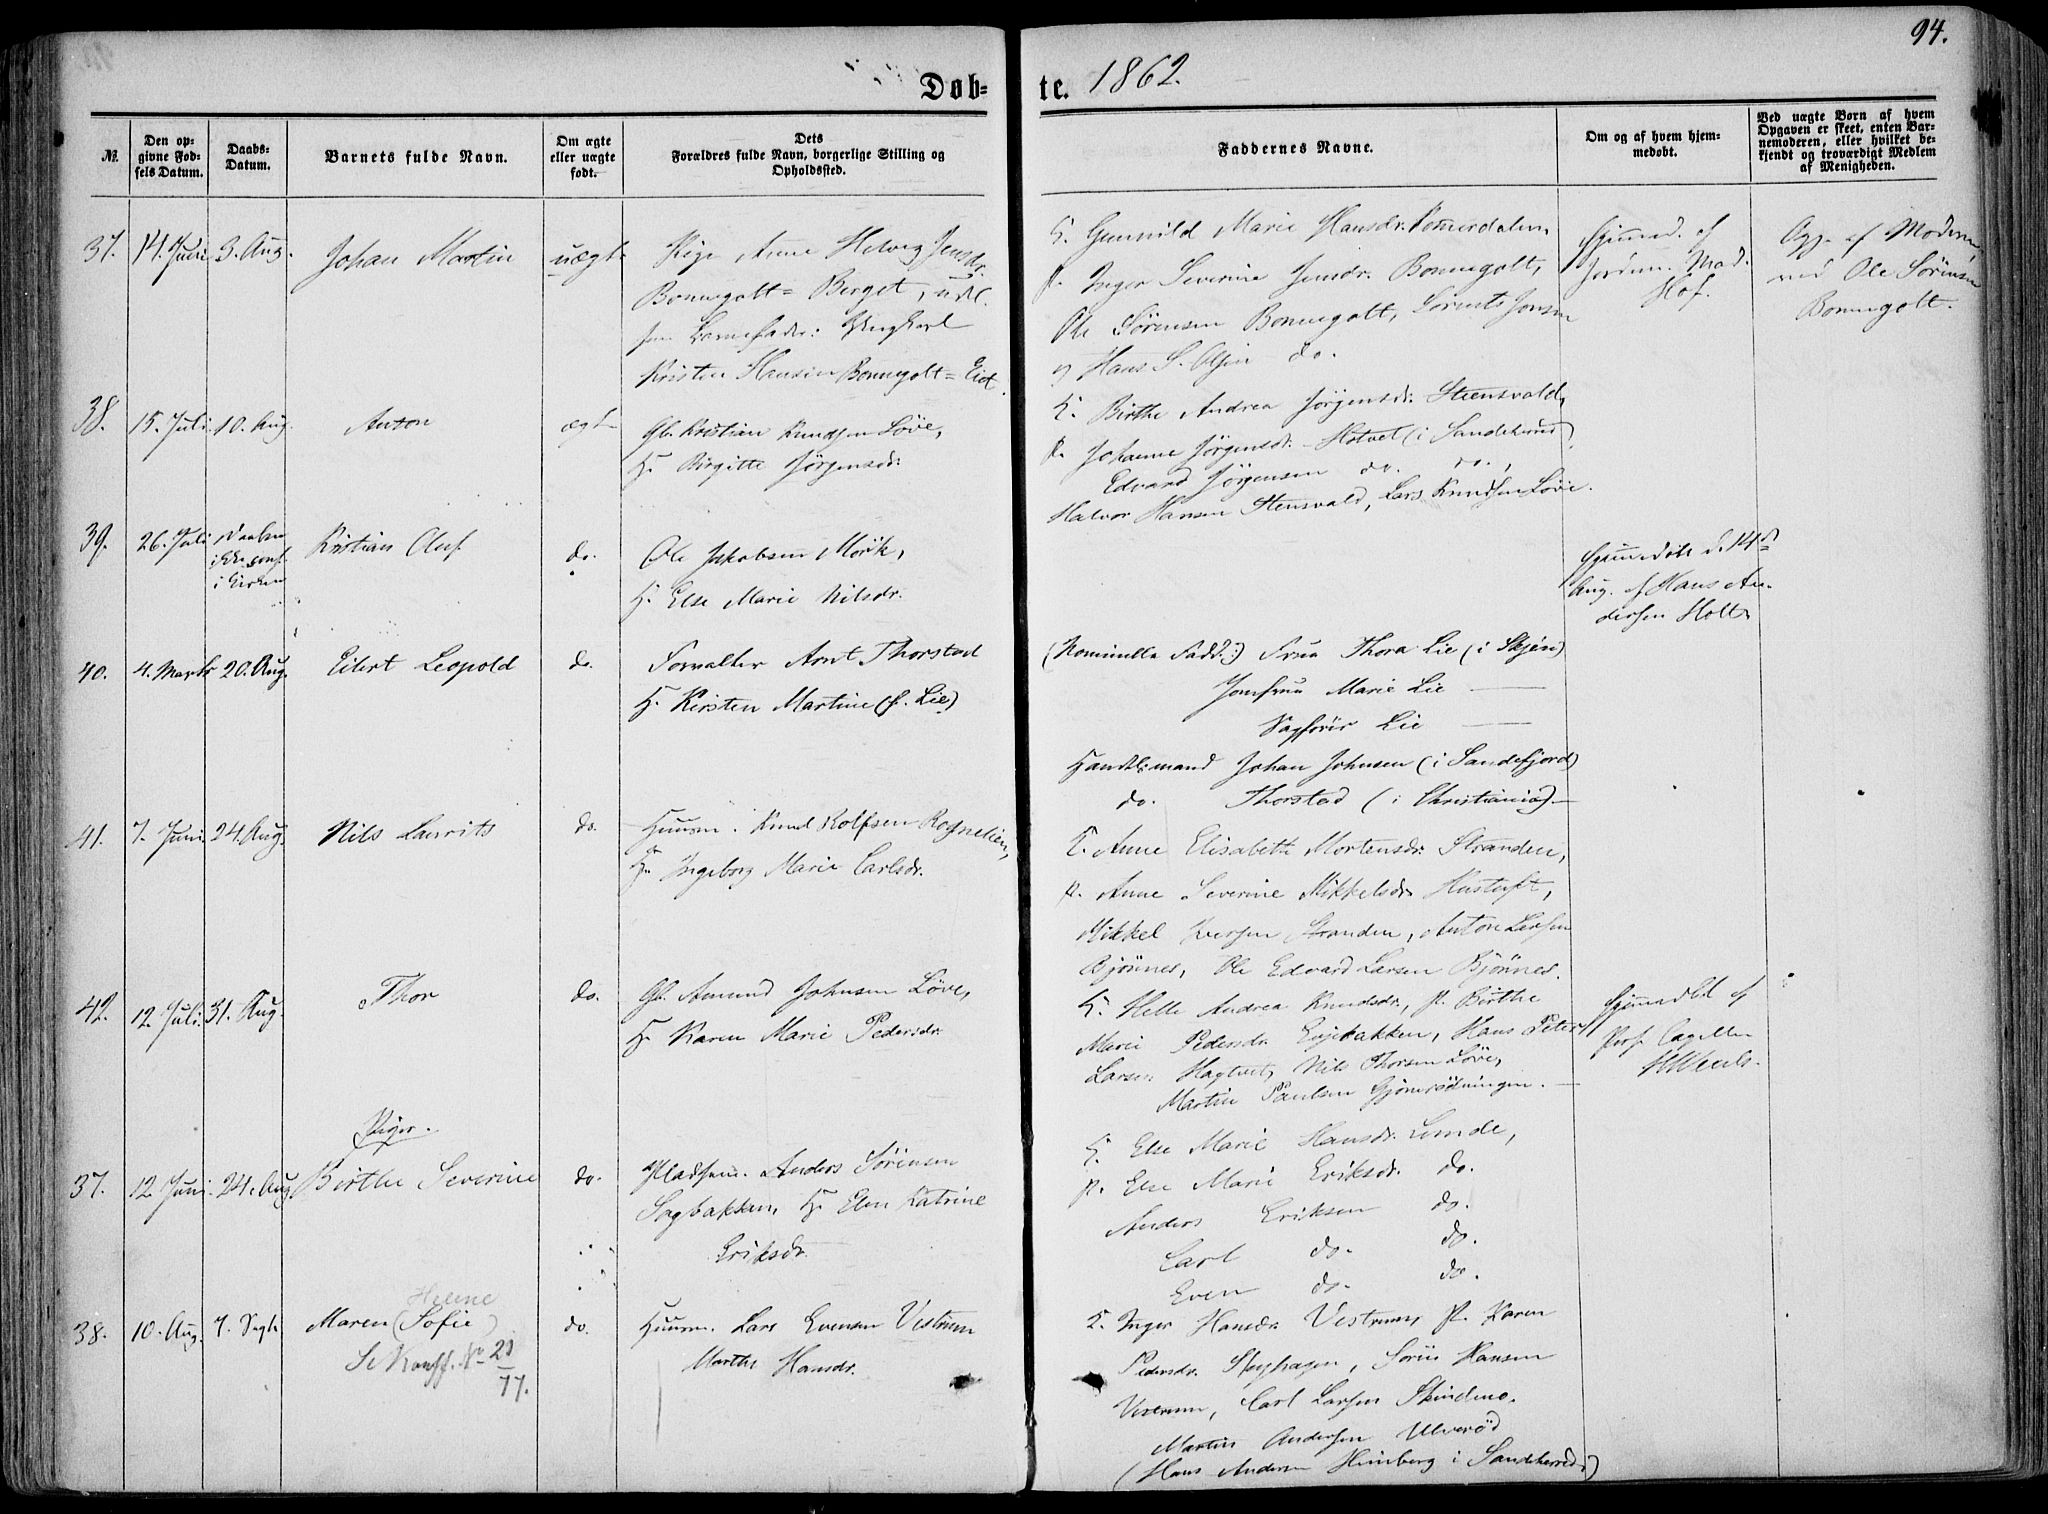 94.
Døb-
te. 1862.
№.
Den op-
givne Fød-
sels Datum.
Daabs-
Datum.
Barnets fulde Navn.
Om ægte
eller uægte
født.
Dets
Forældres fulde Navn, borgerlige Stilling og
Opholdssted.
Faddernes Navne.
Om og af hvem hjem-
medøbt.
Ved uægte Børn af hvem
Opgaven er skeet, enten Bar-
nemoderen, eller hvilket be-
kjendt og troværdigt Medlem
af Menigheden.
37. 14. Juni 3. Aug. Johan Martin uægt
Pige Anne Helvig Jensdr.
Bonnegolt = Berget, udl.
som Barnefader: Ungkarl
Kristen Hansen Bonnegolt = Eid.
K. Gunnild Marie Hansdr.
P. Inger Severine Jensdr. Bonnegolt,
Ole Sørensen Bonnegolt, Jensen
og Hans S. Olsen do.
Hjemmed. af
Jordm. Mad.
Hof.
Opg. af Moderen
ved Ole Sørensen
Bonnegolt.
38. 15. Juli 10. Aug. Anton ægt
Gb. Kristian Knudsen Løve,
H. Birgitte Jørgensdr.
K. Birthe Andrea Jørgensdr. Steensvald,
P. Johanne Jørgensdr. Hotvet (i Sandeherred)
Edvard Jørgensen do. do.,
Halvor Hansen Stensvald, Lars Knudsen Løve.
39. 26. Juli Daaben
ikke conf.
i Kirken
Kristian Oluf do.
Ole Jakobsen Mørk,
H. Else Marie Nilsdr.
Hjemmedøbt d. 14d
Aug. af Hans An-
dersen Holt
40. 4. Marts 20. Aug. Eilert Leopold do.
Forvalter Arnt Thorstad
H. Kirsten Martine (f. Lie)
(Nominella Fadd:) Frua Thora Lie (i Skjen)
Jomfrua Marie Lie —
Sagfører Lie —
Handelsmand Johan Johnsen (i Sandefjord)
do. Thorstad (i Christiania) —
41. 7. Juni 24. Aug. Nils Laurits do.
Huusm. Knud Rolfsen Rognelien,
H. Ingeborg Marie Carlsdr.
K. Anne Elisabeth Mortensdr. Stranden,
P. Anne Severine Mikkelsdr. Hustuft,
Mikkel Iversen Stranden, Anton Larsen
Bjønnes, Ole Edvard Larsen Bjønnes.
42. 12. Juli 31. Aug. Thor do.
Gb. Amund Johnsen Løve,
H. Karen Marie Pedersdr.
K. Helle Andrea Knudsdr., P. Birthe
Marie Pedersdr. Hans Peter
Larsen Hagtvet, Nils Thorsen Løve,
Martin Paulsen Gjønnrødningen. —
Hjemmedøbt af
Pers. Capellan
Piger.
37. 12. Juni 24. Aug. Birthe Severine do.
Pladsm. Anders Sørensen
Sagbakken, H. Elen Katrine
Eriksdr.
K. Else Marie Hansdr. Linde,
P. Else Marie Eriksdr. do.
Anders Eriksen do.
Carl do. do.
Even do. do.
Helene
38. 10. Aug. 7. Septb. Maren (Sofie) do.
Se Konff. No 21
77.
Huusm. Lars Evensen Vestrum
Marthe Hansdr.
K. Inger Hansdr. Vestrum, P. Karen
Pedersdr. Sørin Hansen
Vestrum, Carl Larsen Skindmo.
Martin Andersen Ulverød
(Hans Andersen Himberg i Sandeherred)